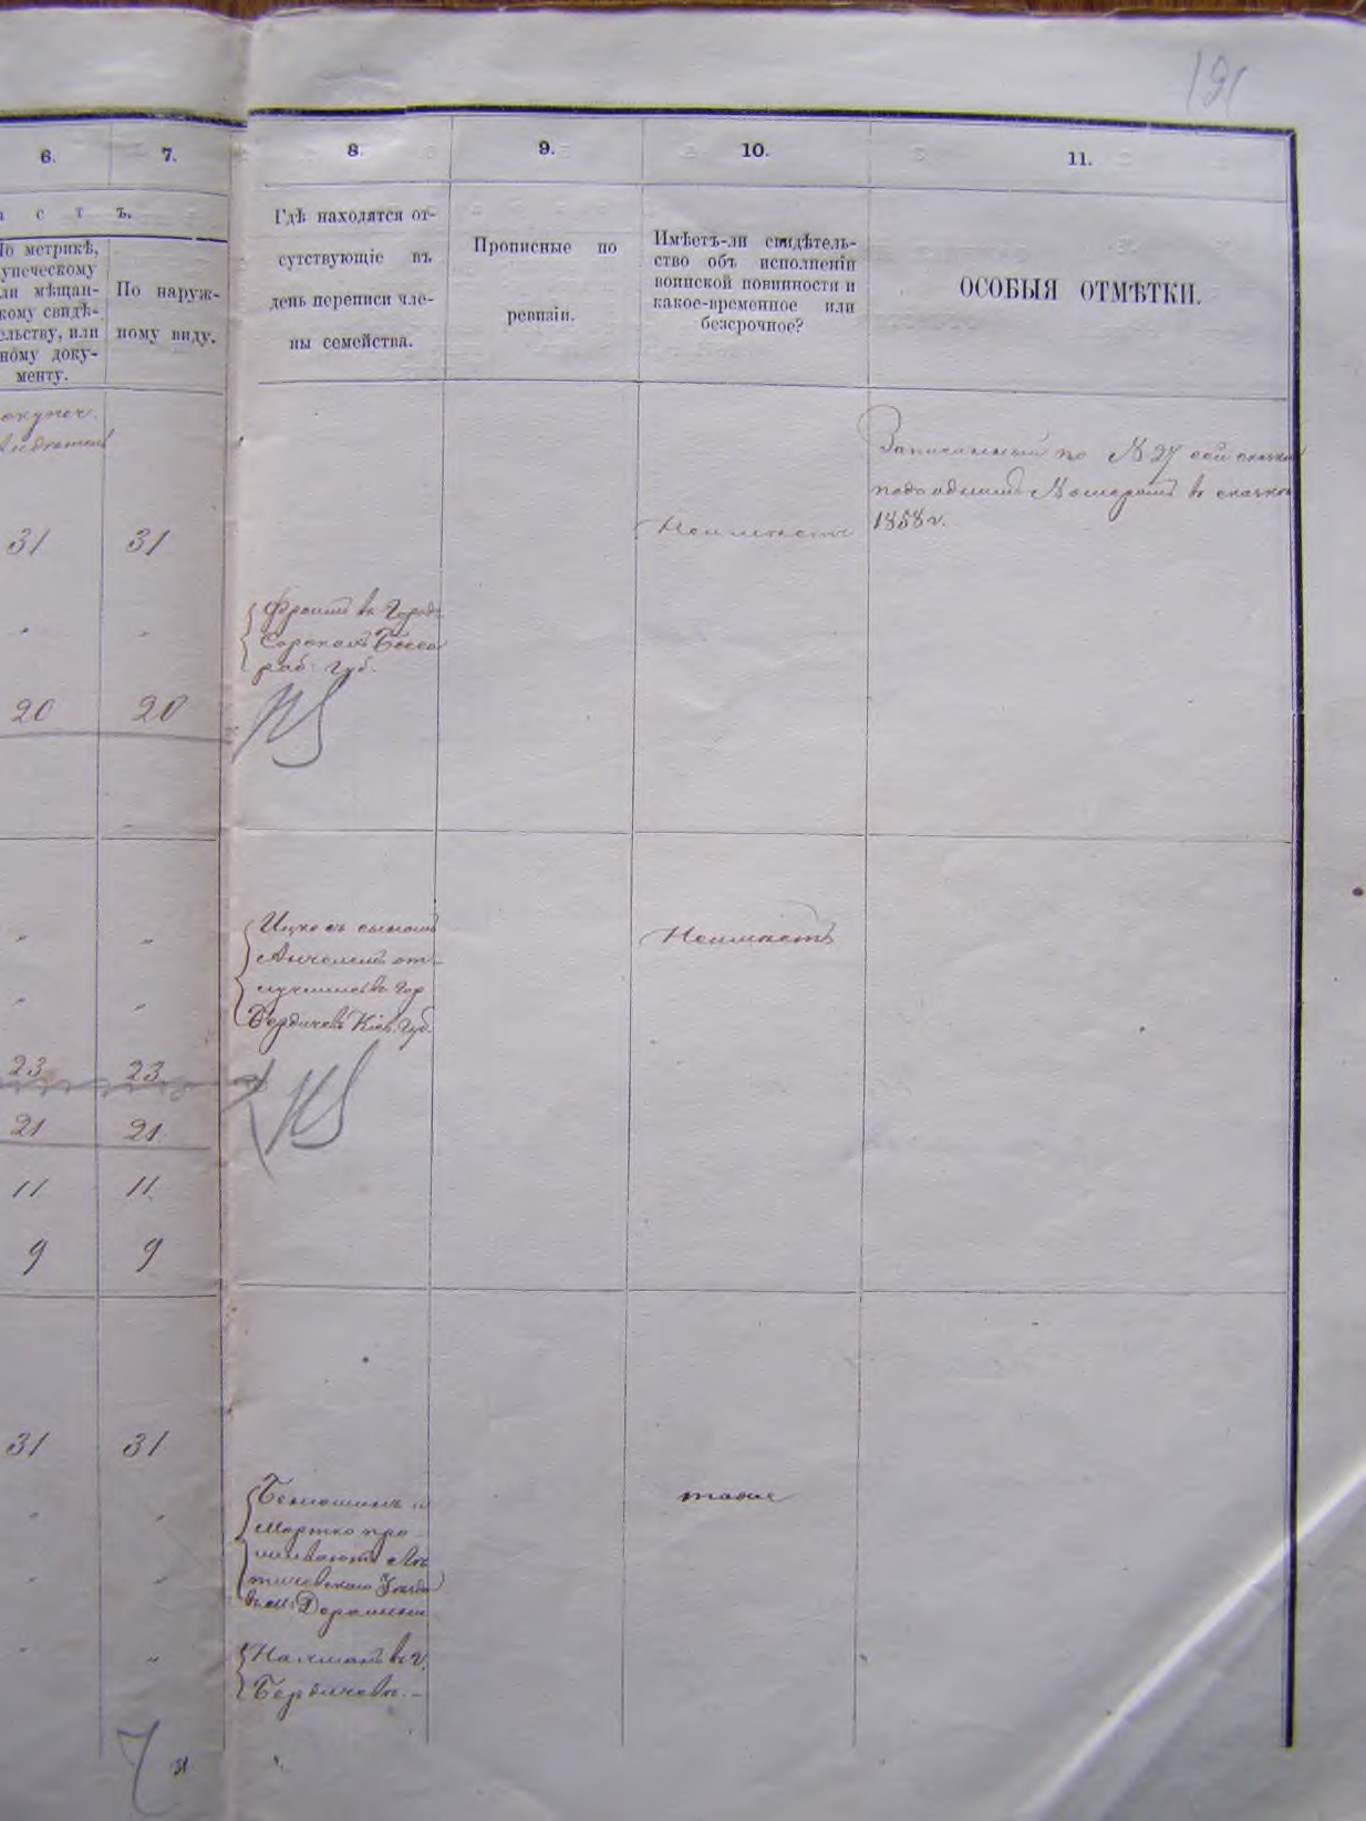 191
6. 7. 8. 9. 10. 11.
а с т ъ.
По метрикѣ,
купеческому
или мѣщан-
скому свидѣ-
тельству, или
иному доку-
менту.
По наруж-
ному виду.
Гдѣ находятся от-
сутствующіе въ
день переписи чле-
ны семейства.
Прописные по
ревизіи.
Имѣетъ-ли свидѣтель-
ство объ исполненіи
воинской повинности и
какое-временное или
безсрочное?
ОСОБЫЯ ОТМѢТКИ.
Записанный по № 27 сей сказки
подъ Номеромъ в сказкѣ
1858 г.
31 31
Неимѣетъ
Фроимъ въ Городѣ
Сорокахъ Бесса
раб. Губ.
20 20
Ицко съ сыномъ
Анчелемъ от-
лучились въ гор
Бердичевъ Кіев. Губ.
Неимѣетъ
23 23
21 21
11 11
9 9
31 31
Мортко про-
живаютъ Ле
тичевскаго Уѣзда
въ м. Деражни
тоже
Нахманъ въ г.
Бердичевѣ. -
7